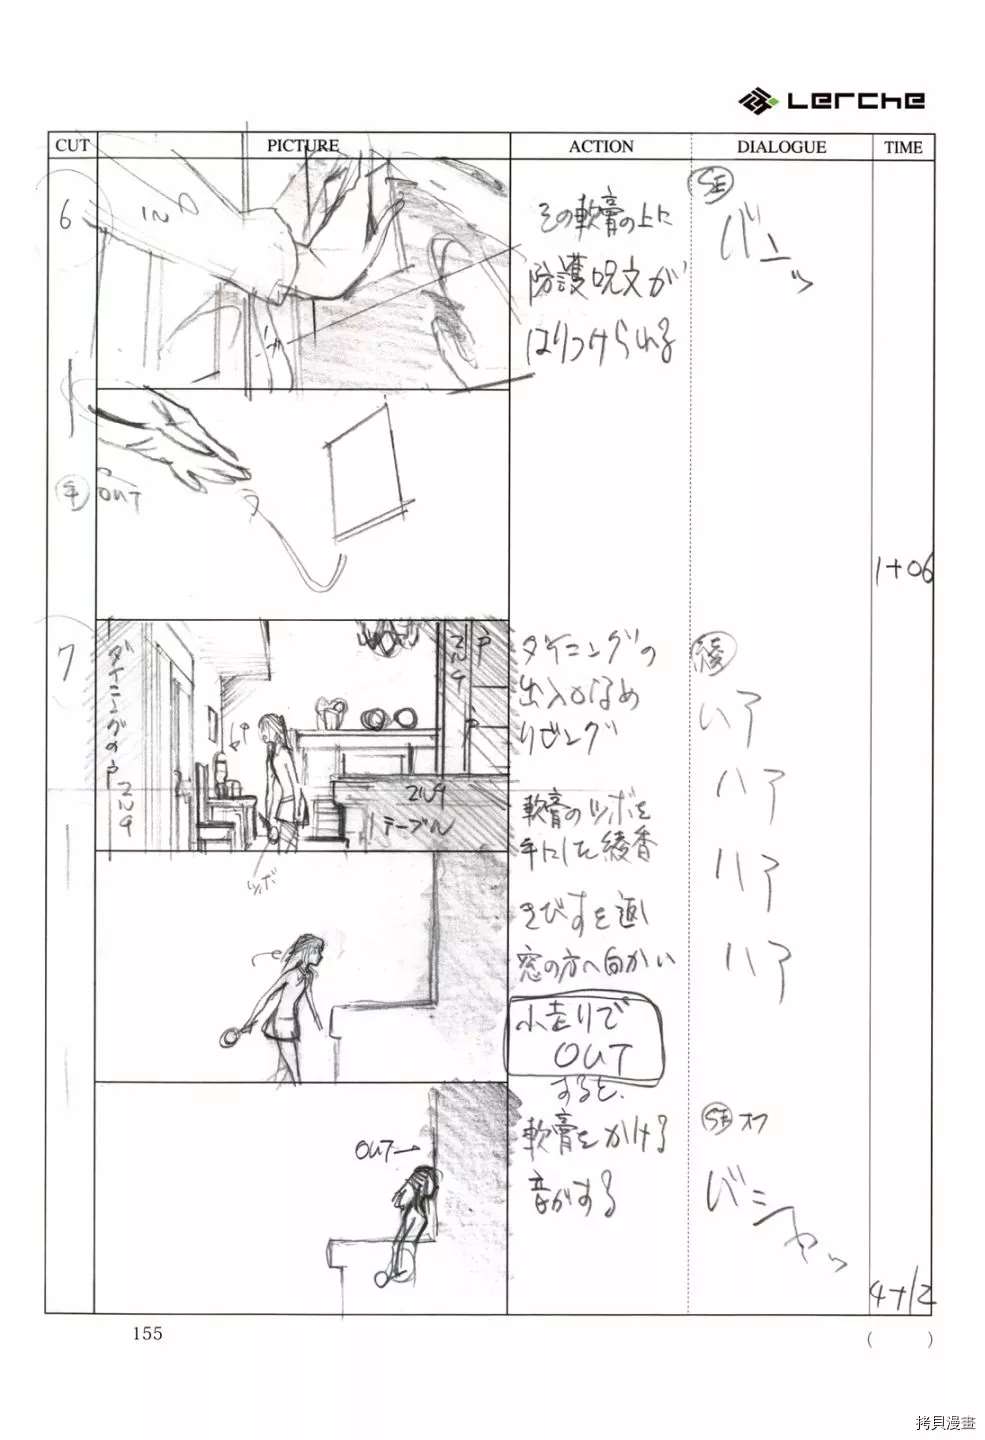 Lerche
CUT PICTURE ACTION DIALOGUE TIME
6
IN
その軟膏の上に
防護呪文が
はりつけられる
SE
バンッ
手
OUT
1+06
7
ダイニングの戸
BOOK
戸
テーブル
ツボ
ダイニングの
出入口なめ
リビング
軟膏のツボを
手にした綾香
きびすを返し
窓の方へ向かい
小走りで
OUT
すると、
軟膏をかける
音がする
綾
ハア
ハア
ハア
ハア
OUT→
SE オフ
バシャッ
4+12
155
( )
拷貝漫畫